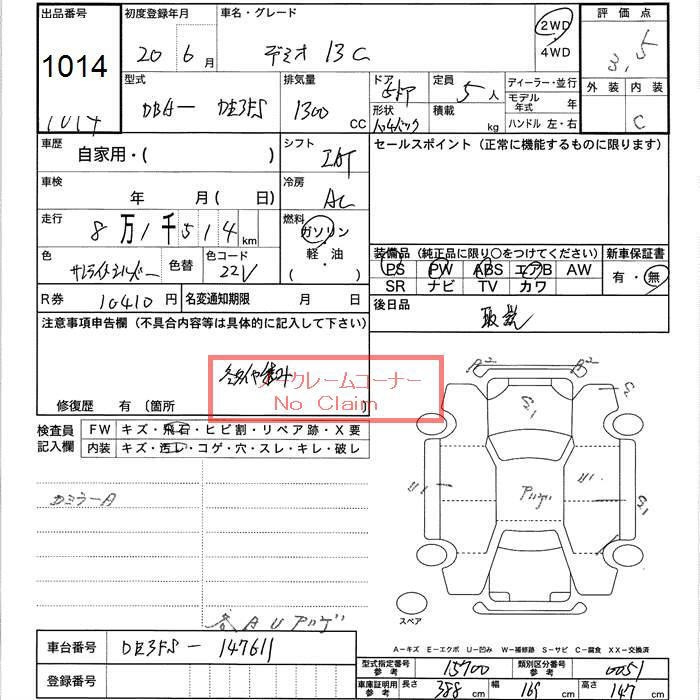 出品番号 初度登録年月 車名・グレード 評価点
1014 20年6月 デミオ 13C 2WD 4WD 3.5
型式 排気量 ドア 定員 ディーラー・並行 外装 内装
DBA- DE3FS 1300 CC 5ドア 5人 モデル年式 年 C
形状 積載 kg ハンドル 左・右
車歴 自家用・( ) シフト セールスポイント (正常に機能するものに限ります)
車検 年 月( 日) 冷房 AC
走行 8万1千514km 燃料 ガソリン・軽・油・( )
色 サンライトシルバー 色替 色コード 22V
装備品 (純正品に限り○をつけてください) 新車保証書
PS PW ABS エアB AW 有・無
SR ナビ TV カワ
R券 10410円 名変通知期限 月 日 後日品 取説
注意事項申告欄 (不具合内容等は具体的に記入して下さい)
ノークレームコーナー
No Claim
修復歴 有 〔箇所
検査員記入欄 FW キズ・飛石・ヒビ割・リペア跡・X要
内装 キズ・汚レ・コゲ・穴・スレ・キレ・破レ
スペア
A－キズ E－エクボ U－凹み W－補修跡 S－サビ C－腐食 XX－交換済
車台番号 DE3FS-147611
登録番号
型式指定番号 参考 15700 類別区分番号 参考 0051
車庫証明用 参考 長さ 388 cm 幅 168 cm 高さ 147 cm